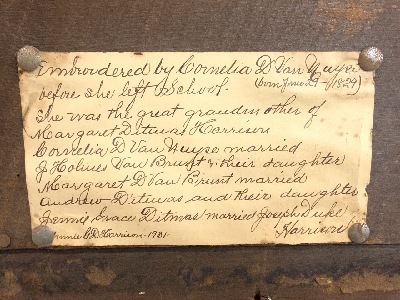 Embroidered by Cornelia D Van Nuyse
(born June 29 - 1829)
before she left School.
She was the great grandmother of
Margaret Ditmas Harrison
Cornelia D Van Nuyse married
J Holmes Van Brunt & their daughter
Margaret D Van Brunt married
Andrew Ditmas and their daughter
Jennie Grace Ditmas married Joseph Duke
Harrison
Jennie G. D. Harrison - 1931 -